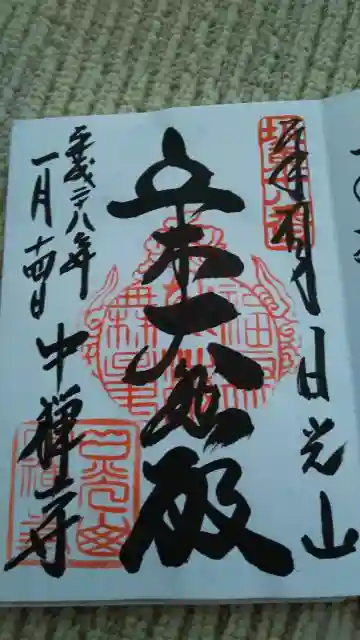 奉拝 日光山
立木大悲殿
平成二十八年
一月十四日 中禅寺
日光山